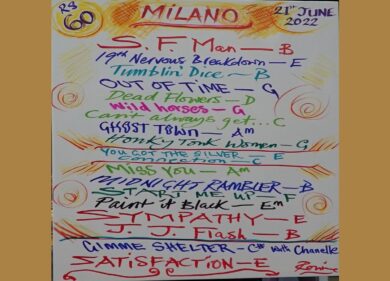 RS 60
MILANO
21st JUNE 2022
S.F. Man — B
19th Nervous Breakdown — E
Tumblin' Dice — B
OUT OF TIME — G
Dead Flowers — D
Wild horses — G
Can't always get... C
GHOST TOWN — Am
Honky Tonk Women — G
YOU GOT THE SILVER — E
CONNECTION — C
Miss You — Am
MIDNIGHT RAMBLER — B
START ME UP — F
Paint it Black — Em
SYMPATHY — E
J. J. Flash — B
GIMME SHELTER — C# with Chanelle
SATISFACTION — E
Ronnie